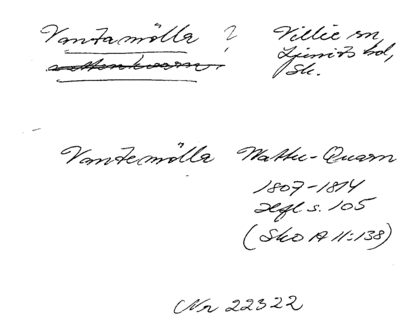 Vantamölla ? Villie sn,
Ljunits hd,
Sk.
Vantemölla Wattu-Quarn
1807-1814
Hfl s. 105
(Sko A II:138)
Nr 22322